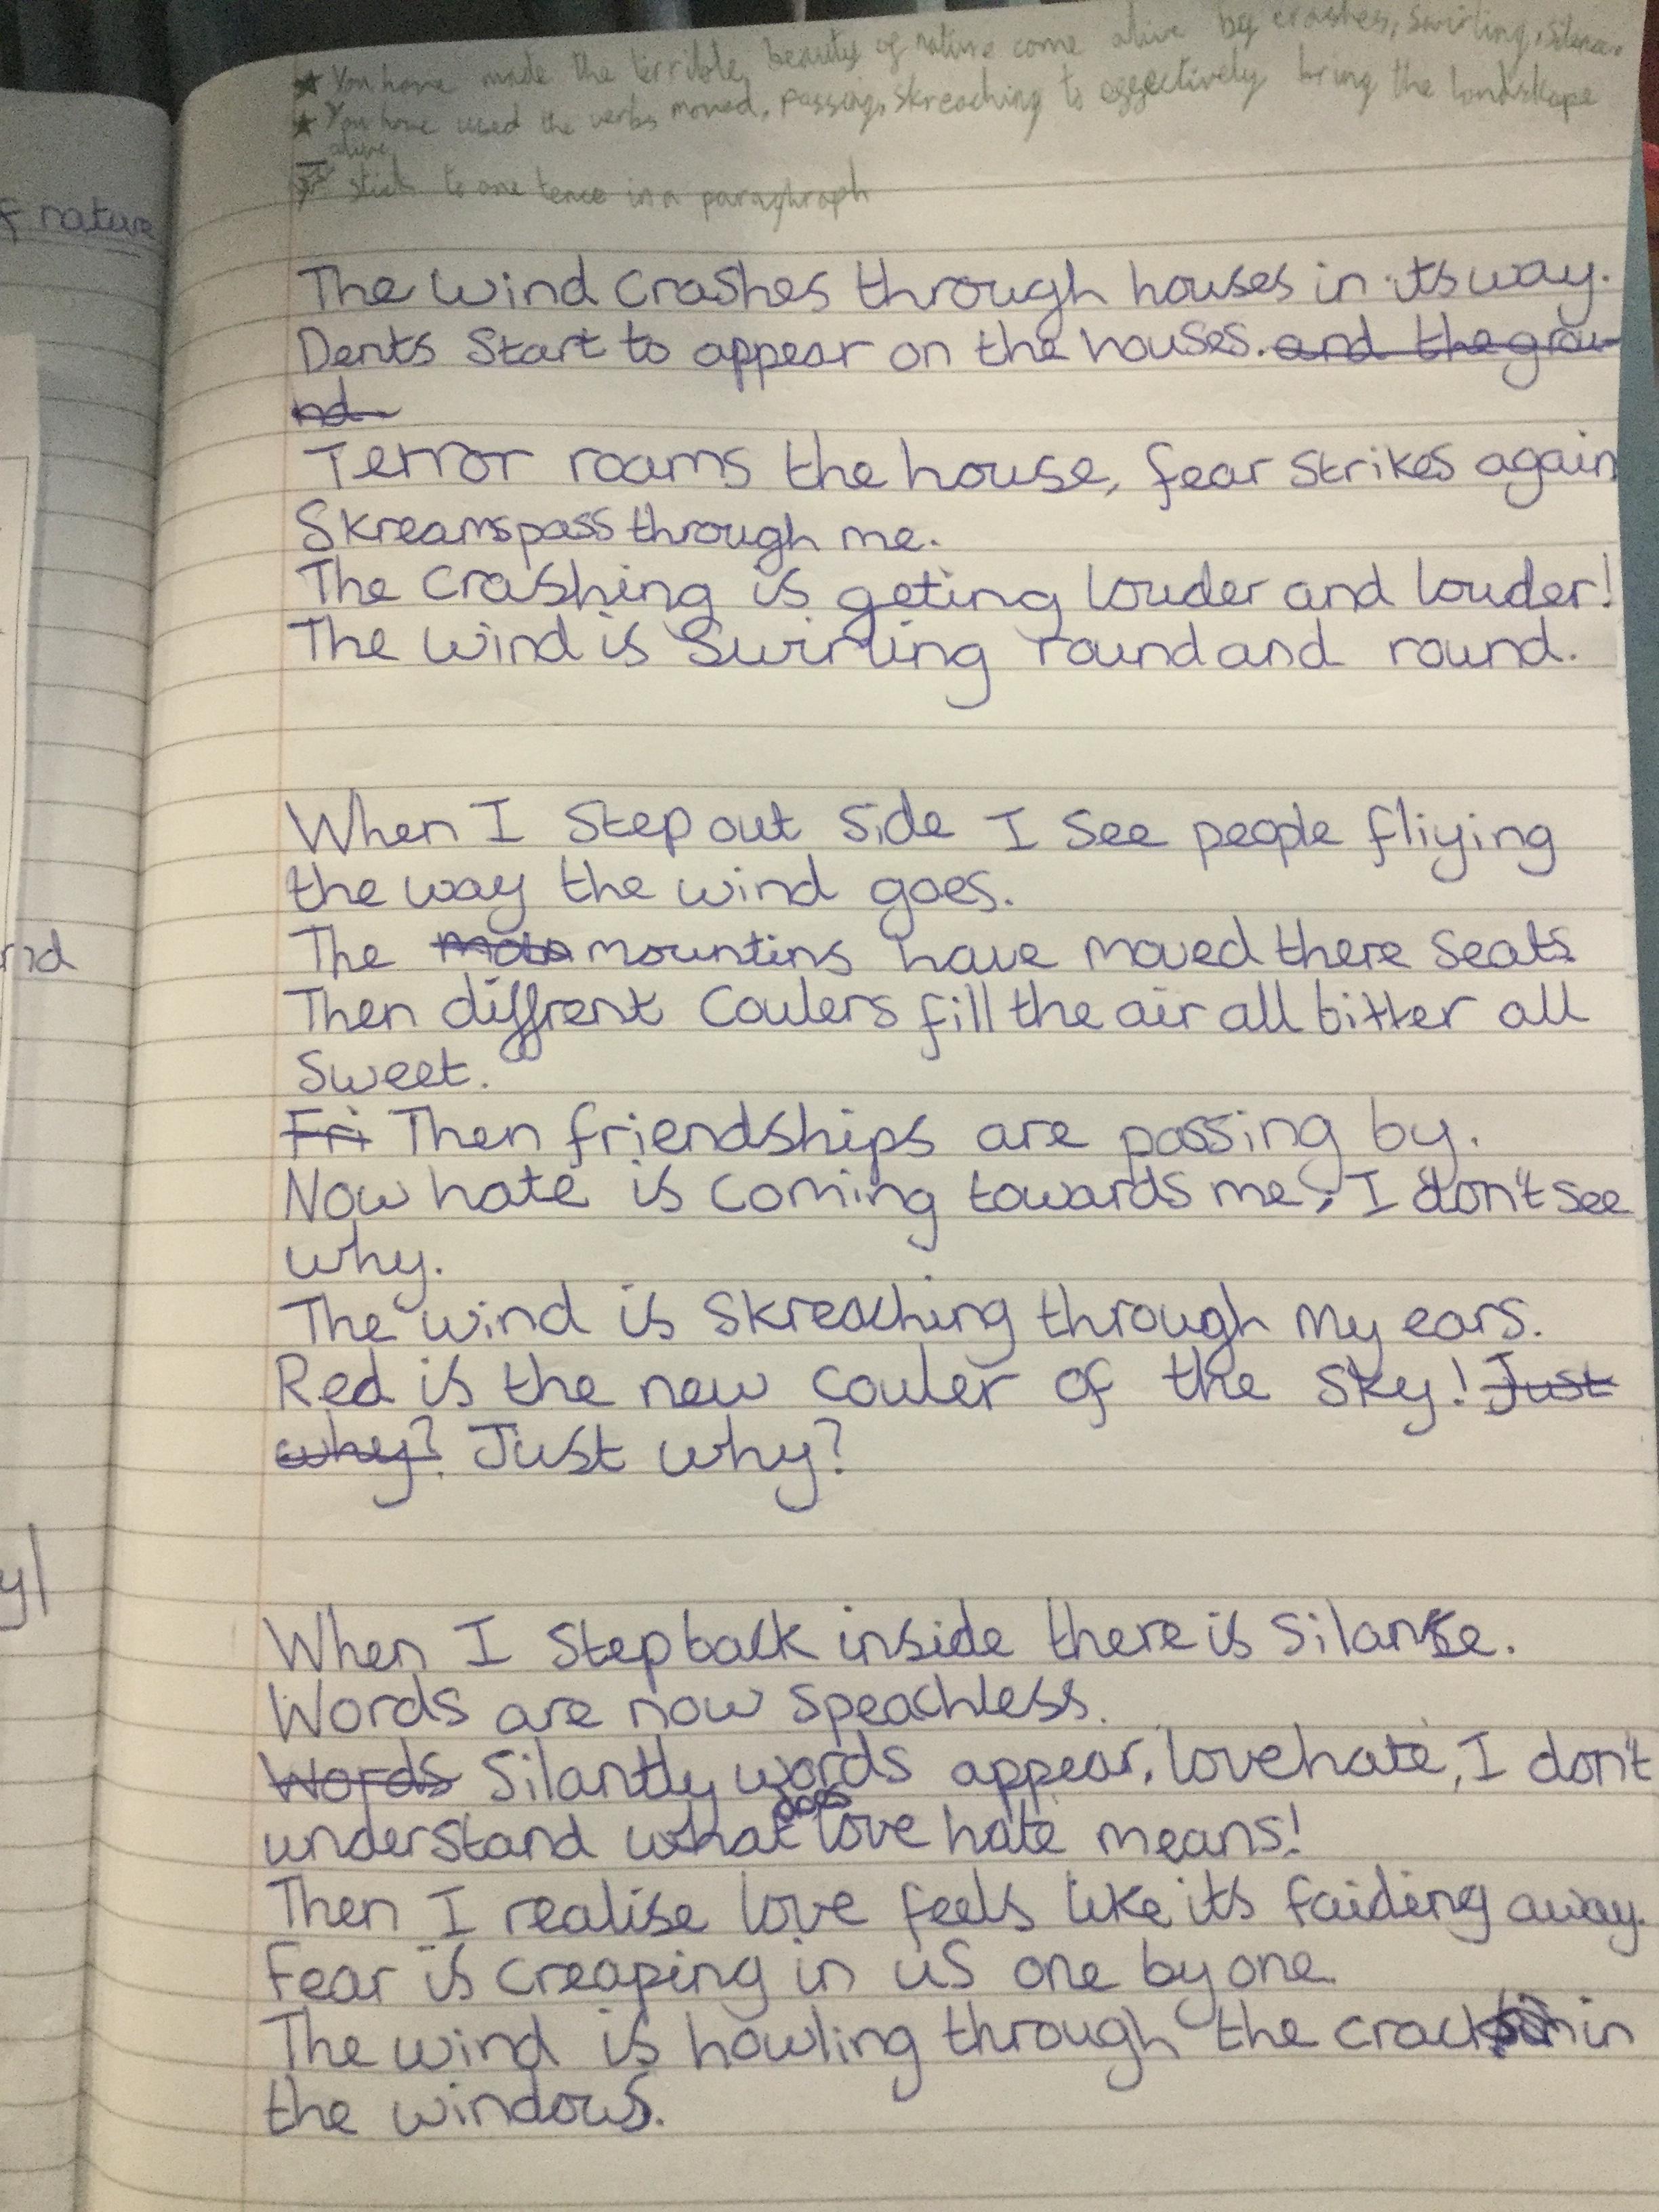 ★ You have made the terrible beauty of nature come alive by crashes, swirling, silence.
★ You have used the verbs moved, passing, skreaching to effectively bring the landskape
alive
stick to one tence in a paraghraph
f nature
The wind crashes through houses in its way.
Dents start to appear on the houses. and the grou
nd
Terror roams the house, fear strikes again
Skreams pass through me.
The crashing is geting louder and louder!
The wind is swirling round and round.
When I step out side I see people fliying
the way the wind goes.
The mountins have moved there seats.
nd
Then diffrent coulers fill the air all bitter all
sweet.
Fri Then friendships are passing by.
Now hate is coming towards me, I don't see
why.
The wind is skreaching through my ears.
Red is the new couler of the sky! Just
why? Just why?
y!
When I step back inside there is silanse.
Words are now speachless.
Words Silantly words appear, love hate, I don't
understand what does love hate means!
Then I realise love feels like it's faiding away.
Fear is creaping in us one by one.
The wind is howling through the cracks in
the windows.